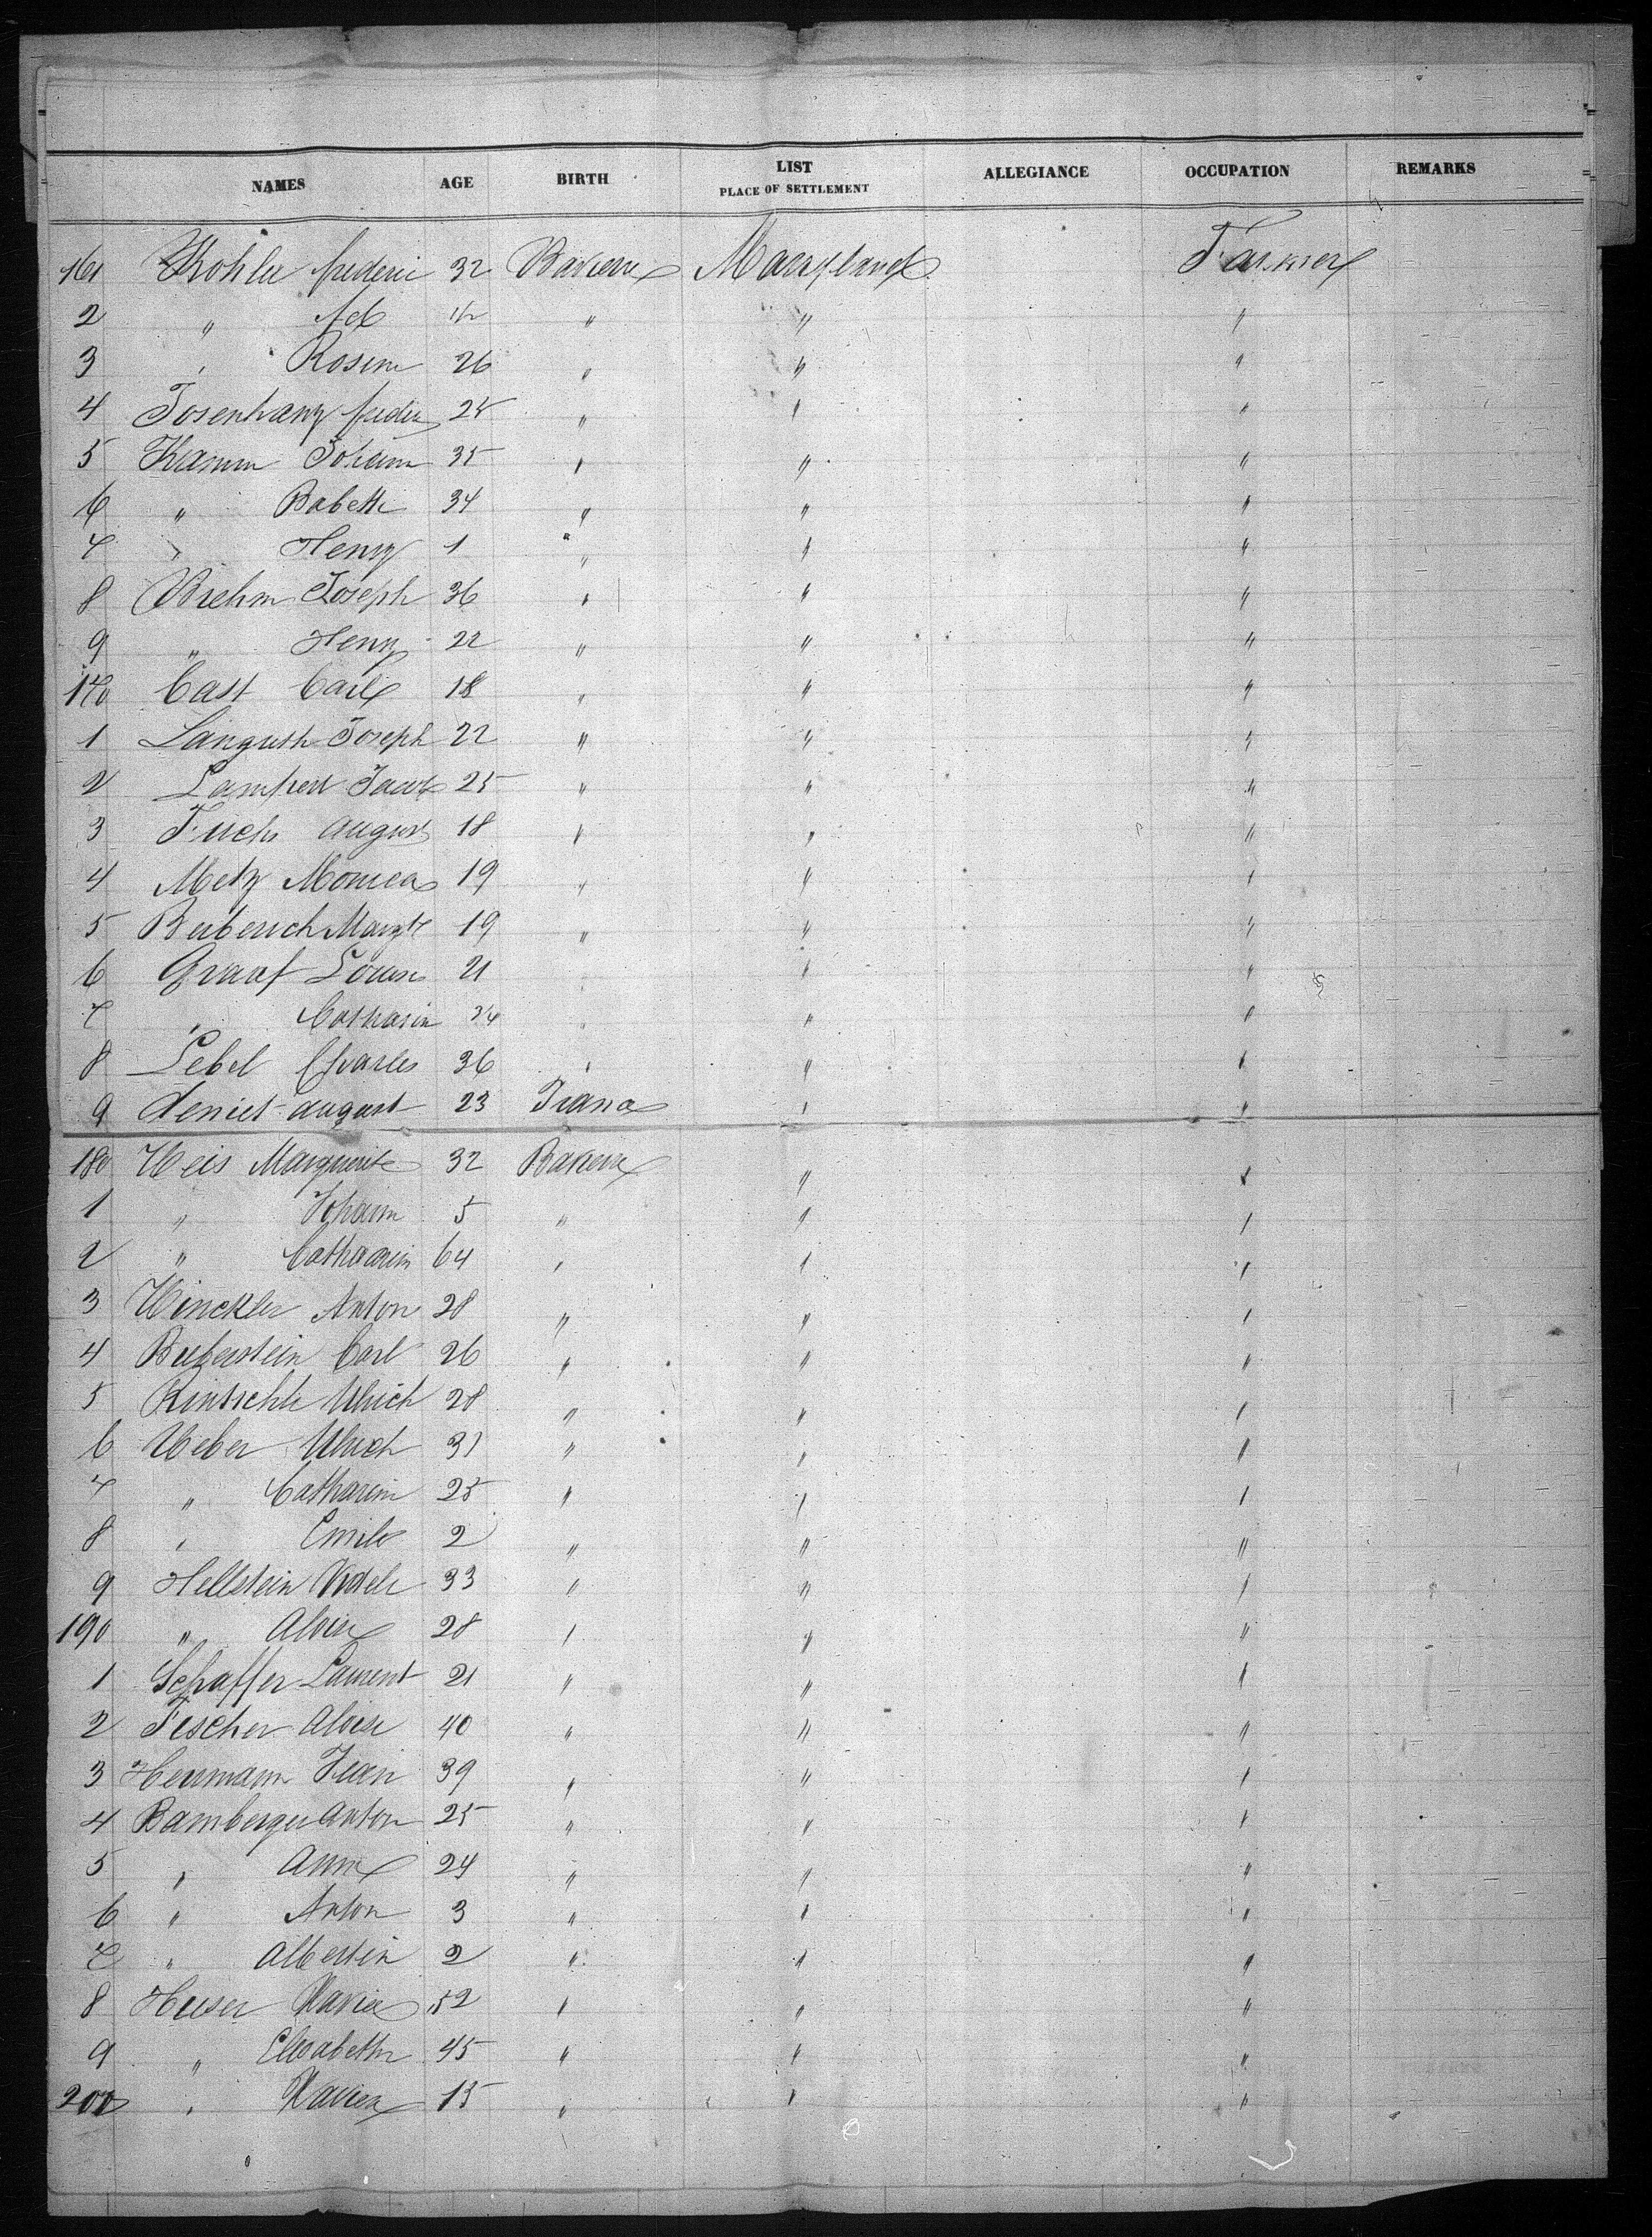 NAMES AGE BIRTH LIST PLACE OF SETTLEMENT ALLEGIANCE OCCUPATION REMARKS
161 Kohler frederic 32 Baviere Maryland Farmer
2 " " " "
3 " Rosine 26 " " "
4 Josenhanz freder " " "
5 Kamm Johann 35 " " "
6 " Babette 34 " " "
7 " Henry 1 " " "
8 Brehm Joseph 36 " " "
9 " Henry 22 " " "
170 Cast Carl 18 " " "
1 Langush Joseph 22 " " "
2 Lampert Jacob 25 " " "
3 Fuchs August 18 " " "
4 Metz Monica 19 " " "
5 Berberich Margte 19 " " "
6 Graaf Louise 21 " " "
7 " Catharin 24 " " "
8 Lebel Charles 36 " " "
9 August 23 " "
180 Weis Marguerite 32 Baviere " "
1 " Johann 5 " " "
2 " Catharin 64 " " "
3 Winckler Anton 28 " " "
4 Biberstein Carl 26 " " "
5 Rintschle Ulrich 28 " " "
6 Weber Ulrich 31 " " "
7 " Catharin 25 " " "
8 " Emile 2 " " "
9 Hellstein 33 " " "
190 " Aloise 28 " " "
1 Schaffer Laurent 21 " " "
2 Fischer Aloise 40 " " "
3 Herrmann Jean 39 " " "
4 Bamberger Anton 25 " " "
5 " Anne 24 " " "
6 " Anton 3 " " "
7 " Albertin 2 " " "
8 Huser Xavier 52 " " "
9 " Elisabeth 45 " " "
200 " Xavier 15 " " "